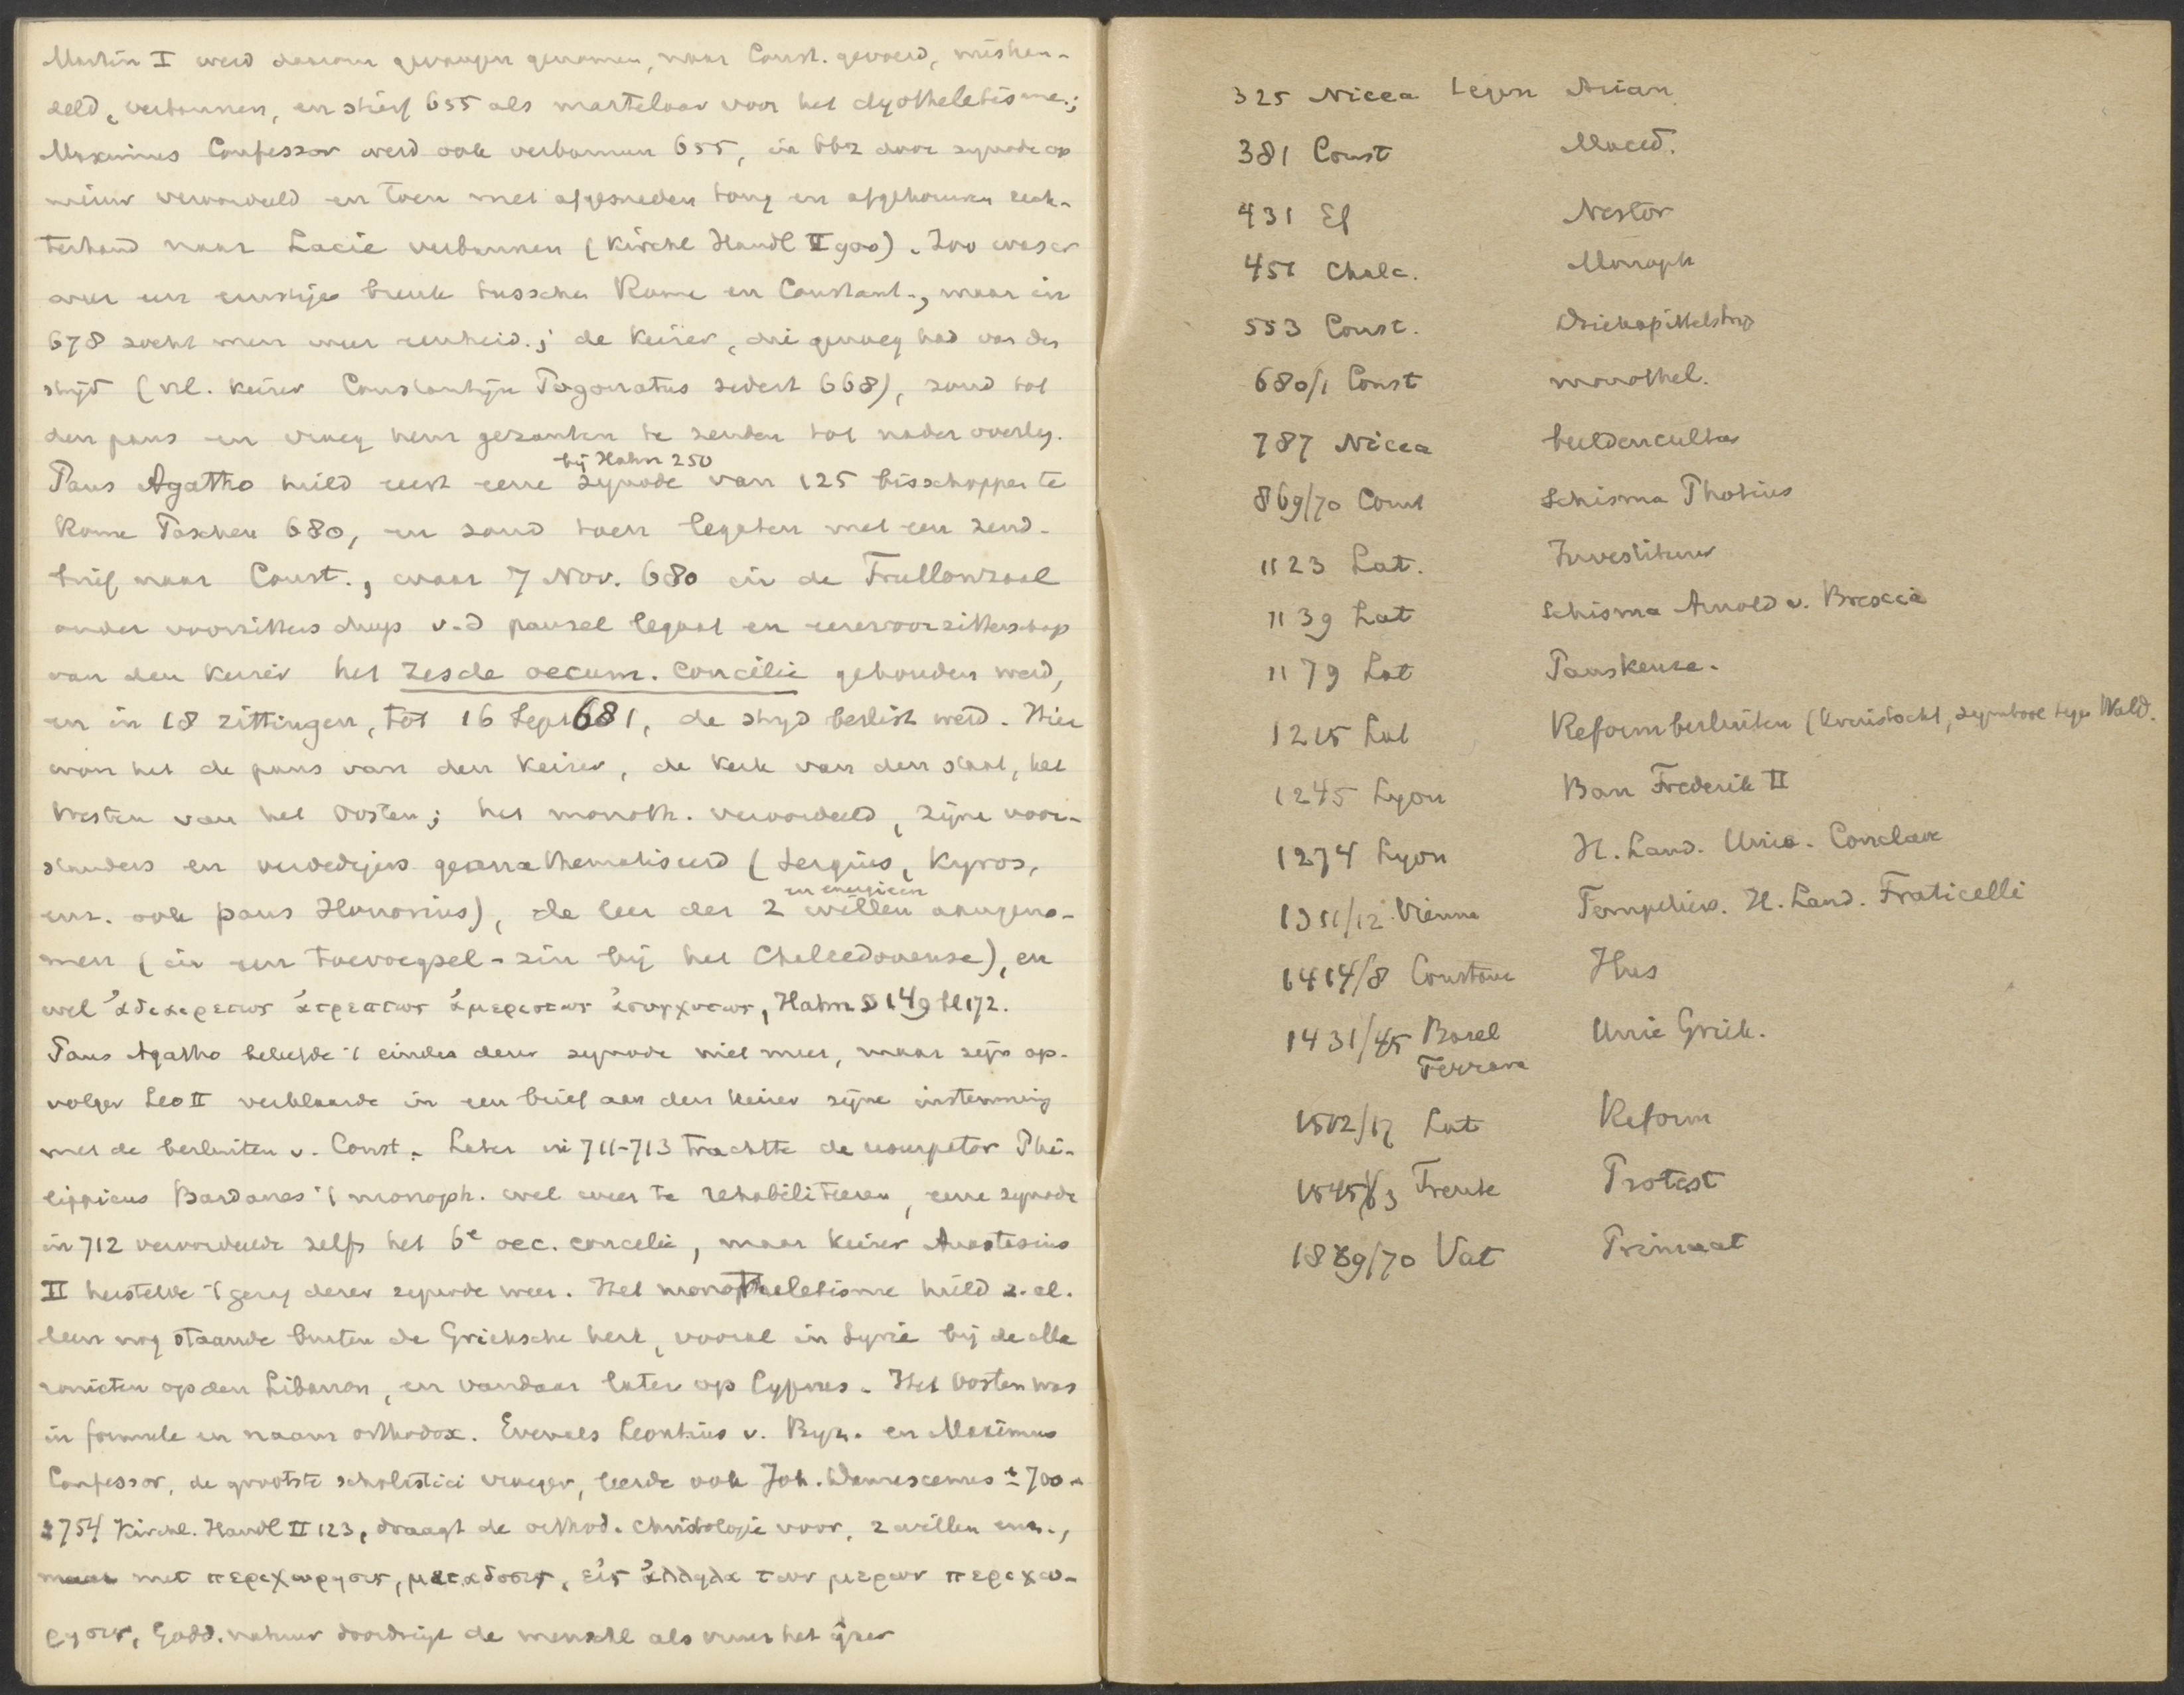 Martin I werd daarom gevangen genomen, naar Const. gevoerd, mishan-
deld, verbannen, en stierf 655 als martelaar voor het dyotheletisme.;
Maximus Confessor werd ook verbannen 655, in 662 door synode op
nieuw veroordeeld en toen met afgesneden tong en afgehouwen rech-
terhand naar Lacie verbannen (Kirchl Handl II 900). Zoo was er
weer een ernstige breuk tusschen Rome en Constant., maar in
678 zocht men weer eenheid.; de Keizer, die genoeg had van den
strijd (nl. Keizer Constantijn Pogonatus sedert 668), zond tot
den paus en vroeg hem gezanten te zenden tot nader overleg.
bij Hahn 250
Paus Agatho hield eerst eene synode van 125 bisschoppen te
Rome Paschen 680, en zond toen legaten met een zend-
brief naar Const., waar 7 Nov. 680 in de Trullonzaal
onder voorzitterschap v.d pausel legaat en eerevoorzitterschap
van den Keizer het zesde oecum. concilie gehouden werd,
en in 18 zittingen, tot 16 Sept 681, de strijd beslist werd. Hier
won het de paus van den Keizer, de Kerk van den staat, het
Westen van het Oosten; het monoth. veroordeeld, zijne voor-
standers en verdedigers geanathematiseerd (Sergius, Kyros,
en energieen
enz. ook paus Honorius), de leer der 2 willen aangeno-
men (in een toevoegsel-zin bij het Chalcedonense), en
wel ἀδιαιρετως ἀτρεπτως ἀμεριστως ἀσυγχυτως, Hahn § 149 bl 172.
Paus Agatho beleefde 't einde dezer synode niet meer, maar zijn op-
volger Leo II verklaarde in een brief aan den Keizer zijne instemming
met de besluiten v. Const. Later in 711-713 trachtte de usurpator Phi-
lippicus Bardanes 't monoph. wel weer te rehabiliteeren, eene synode
in 712 veroordeelde zelfs het 6e oec. concilie, maar Keizer Anastasius
II herstelde 't gezag dezer synode weer. Het monotheletisme hield z. al-
leen nog staande buiten de Grieksche kerk, vooral in Syrie bij de Ma
ronieten op den Libanon, en vandaar later op Cyprus. Het Oosten was
in formule en naam orthodox. Evenals Leontius v. Byz. en Maximus
Confessor, de grootste scholastici vroeger, leerde ook Joh. Damascenus ± 700-
± 754 Kirchl. Handl II 123, draagt de orthod. christologie voor, 2 willen enz.,
maar met περιχωρησις, μεταδοσις, εἰς ἀλληλα των μερων περιχω-
ρησις, Godd. natuur doordringt de menschl als vuur het ijzer
325 Nicea tegen Arian
381 Const Maced.
431 Ef Nestor
451 Chalc. Monoph
553 Const. Driekapittelstrijd
680/1 Const monothel.
787 Nicea beeldencultus
869/70 Const Schisma Photius
1123 Lat. Investituur
1139 Lat Schisma Arnold v. Brescia
1179 Lat Pauskeuze.
1215 Lat Reformbesluiten (Kruistocht, symbool tegen Wald.
1245 Lyon Ban Frederik II
1274 Lyon H. Land. Unie. Conclave
1311/12 Vienne Tempeliers. H. Land. Fraticelli
1414/8 Constanz Hus
1431/45 Basel Unie Griek.
Ferrara
1512/17 Lat Reform
1545/63 Trente Protest
1869/70 Vat Primaat